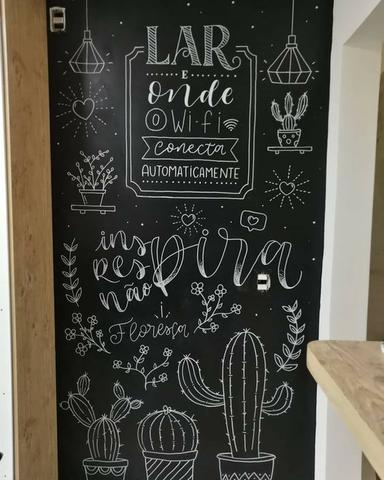 LAR
E
onde
O Wi-fi
conecta
AUTOMATICAMENTE
ins
res pira
não
i
Floresça